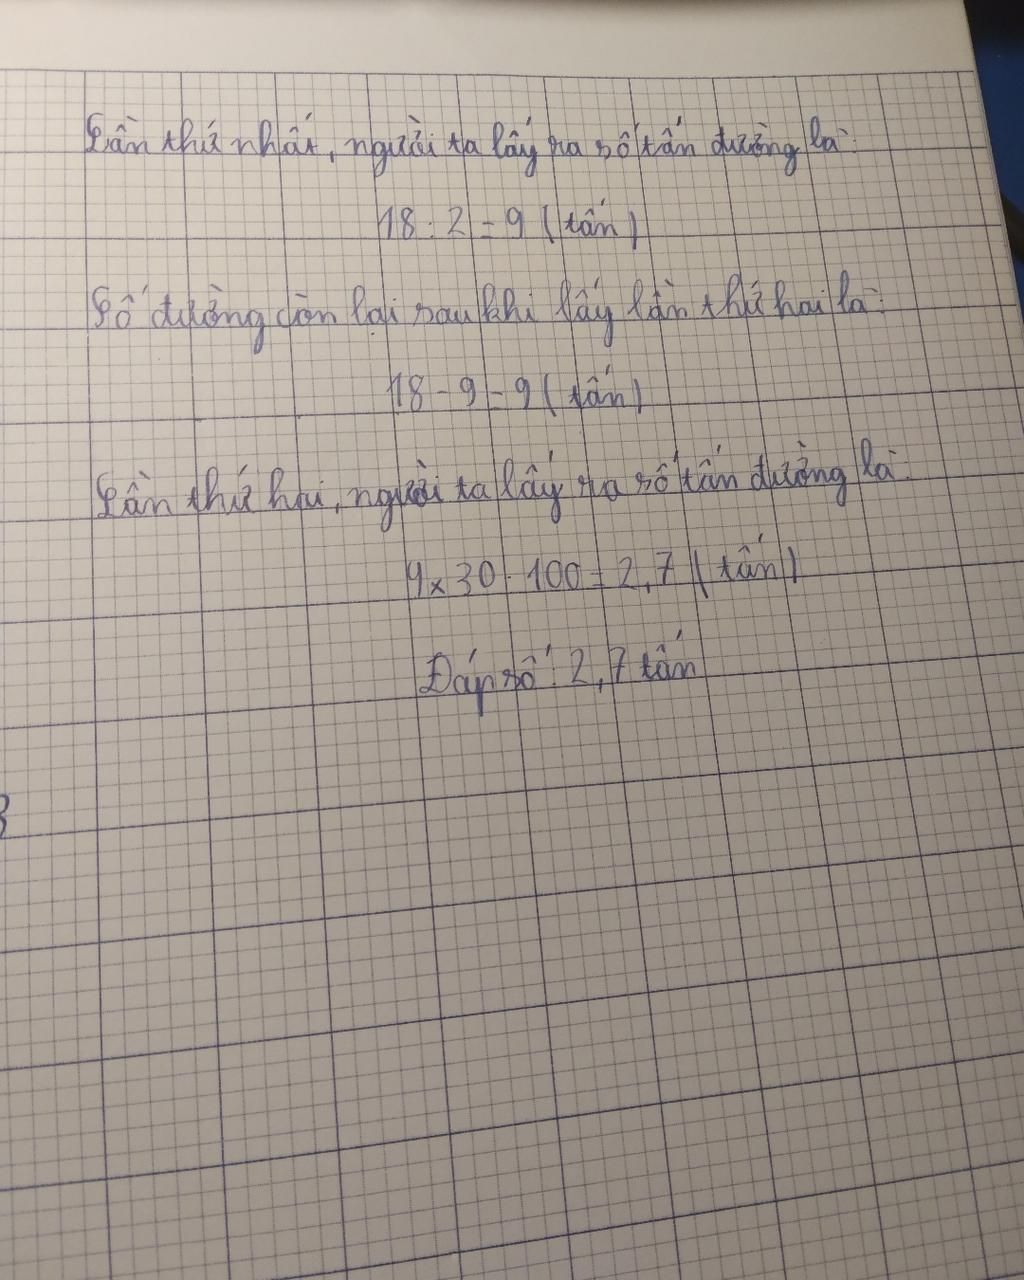 Lần thứ nhất, người ta lấy ra số tấn đường là:
18 : 2 = 9 (tấn)
Số đường còn lại sau khi lấy lần thứ hai là:
18 - 9 = 9 (tấn)
Lần thứ hai, người ta lấy ra số tấn đường là:
9 x 30 : 100 = 2,7 (tấn)
Đáp số : 2,7 tấn